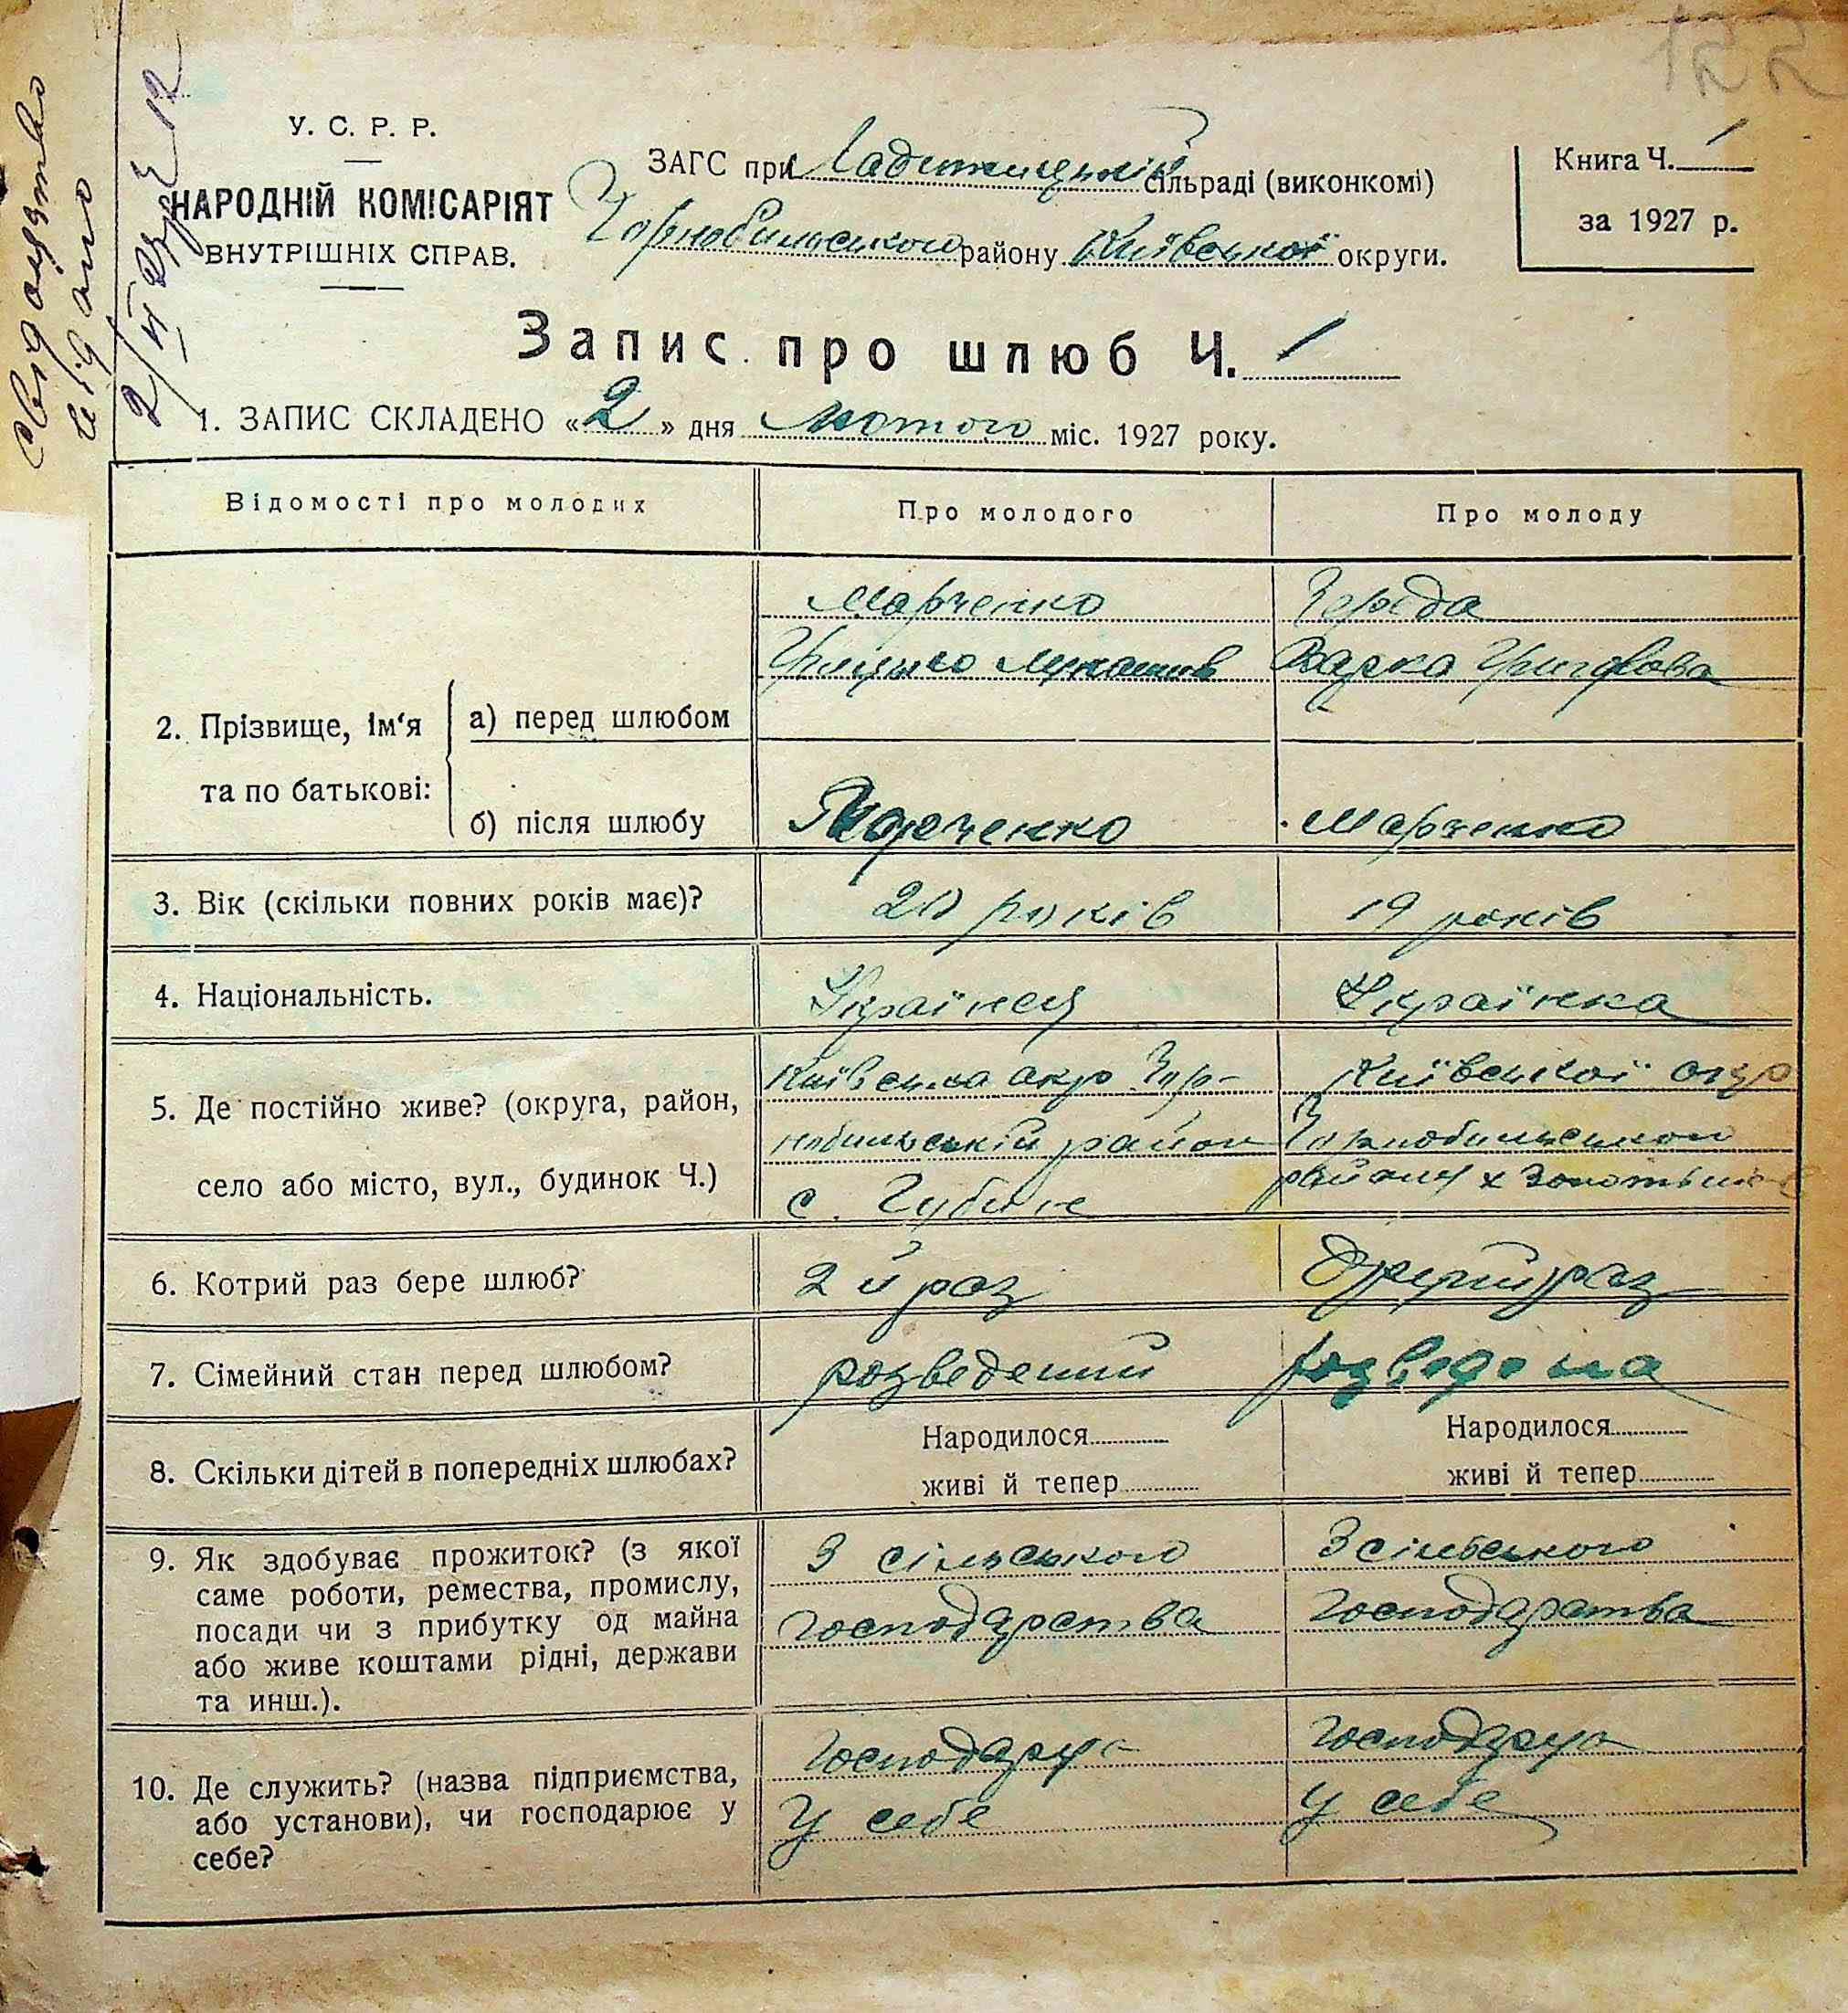 122
Свідоцтво
видано
2/II 27 р № 12
У. С. Р. Р.
НАРОДНІЙ КОМІСАРІЯТ
ВНУТРІШНІХ СПРАВ.
ЗАГС при Ладижицькій сільраді (виконкомі)
Чорнобильського району Київської округи.
Книга Ч. 1
за 1927 р.
Запис про шлюб Ч. 1
1. ЗАПИС СКЛАДЕНО «2» дня Лютого міс. 1927 року.
Відомості про молодих
Про молодого
Про молоду
2. Прізвище, ім'я та по батькові:
а) перед шлюбом
Марченко
Грицько Лукашив
Череда
Варка Григорова
б) після шлюбу
Марченко
Марченко
3. Вік (скільки повних років має)?
20 років
19 років
4. Національність.
Українец
Українка
5. Де постійно живе? (округа, район,
село або місто, вул., будинок Ч.)
Київська окр Чор-
нобильській район
с. Губине
Київської окр
Чорнобильського
району х
6. Котрий раз бере шлюб?
2 й раз
другий раз
7. Сімейний стан перед шлюбом?
розведений
розведена
8. Скільки дітей в попередніх шлюбах?
Народилося
живі й тепер
Народилося
живі й тепер
9. Як здобуває прожиток? (з якої
саме роботи, ремества, промислу,
посади чи з прибутку од майна
або живе коштами рідні, держави
та инш.).
З сільського
господарства
З сільського
господарства
10. Де служить? (назва підприємства,
або установи), чи господарює у
себе?
Господарує
У себе
Господарує
У себе